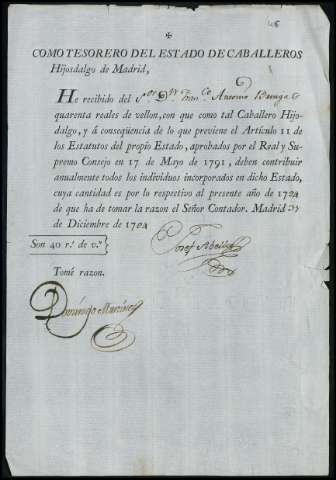 COMO TESORERO DEL ESTADO DE CABALLEROS
Hijosdalgo de Madrid,
He recibido del S.or D.n Fran.co Antonio
quarenta reales de vellon, con que como tal Caballero Hijo-
dalgo, y á conseqüencia de lo que previene el Artículo 11 de
los Estatutos del propio Estado, aprobados por el Real y Su-
premo Consejo en 17 de Mayo de 1791, deben contribuir
anualmente todos los individuos incorporados en dicho Estado,
cuya cantidad es por lo respectivo al presente año de 1794
de que ha de tomar la razon el Señor Contador. Madrid 31
de Diciembre de 1794
Son 40 r.s de v.n
Josef
Tomé razon.
Domingo Martinez